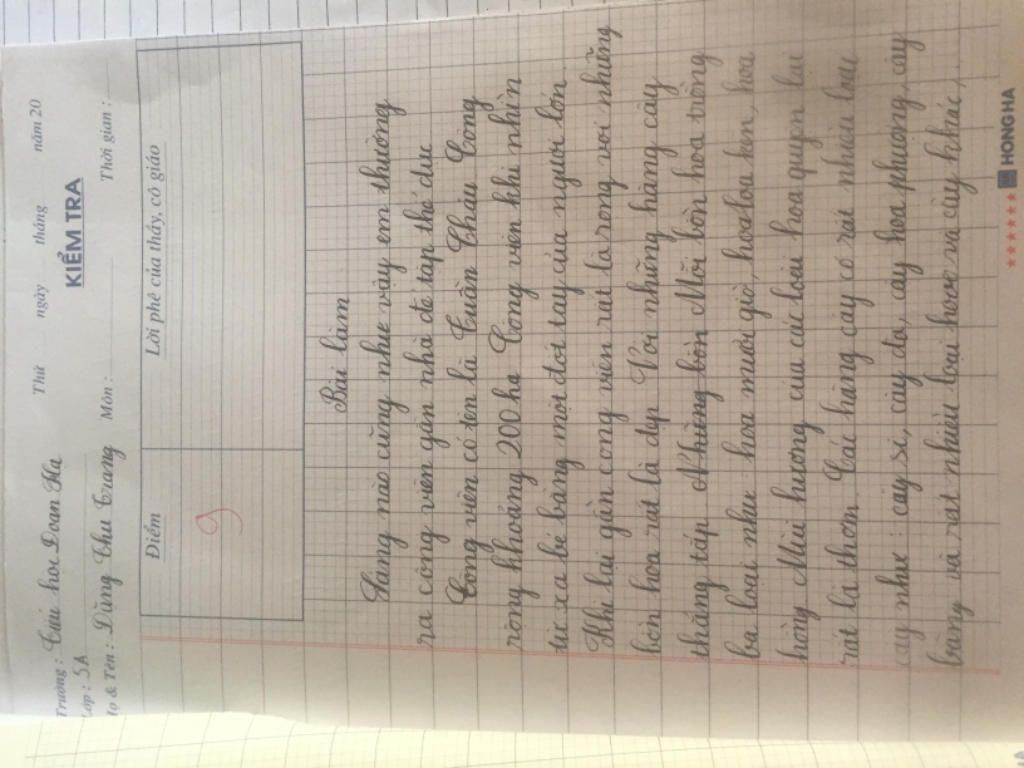 Thứ ngày tháng năm 20
Trường: Tiểu học Đoan Hạ
KIỂM TRA
Lớp: 5A
Họ & Tên: Dùng Thu Trang Môn: Thời gian:
Điểm Lời phê của thầy, cô giáo
9
Bài làm
Sáng nào cũng như vậy em thường
ra công viên gần nhà để tập thể dục
Công viên có tên là Tuần Châu Công
rông khoảng 200 ha Công viên khi nhìn
từ xa bé bằng một đốt tay của người lớn
Khi lại gần công viên rất là rộng với những
bồn hoa rất là đẹp Với những hàng cây
thẳng tắp Những bồn Mỗi bồn hoa trồng
ba loại như hoa mười giờ, hoa loa kèn, hoa
hồng Mùi hương của các loài hoa quyện lại
rất là thơm Các hàng cây có rất nhiều loại
cây như: cây si, cây đa, cây hoa phượng, cây
bằng và rất nhiều loại hoa và cây khác,
HONG HA